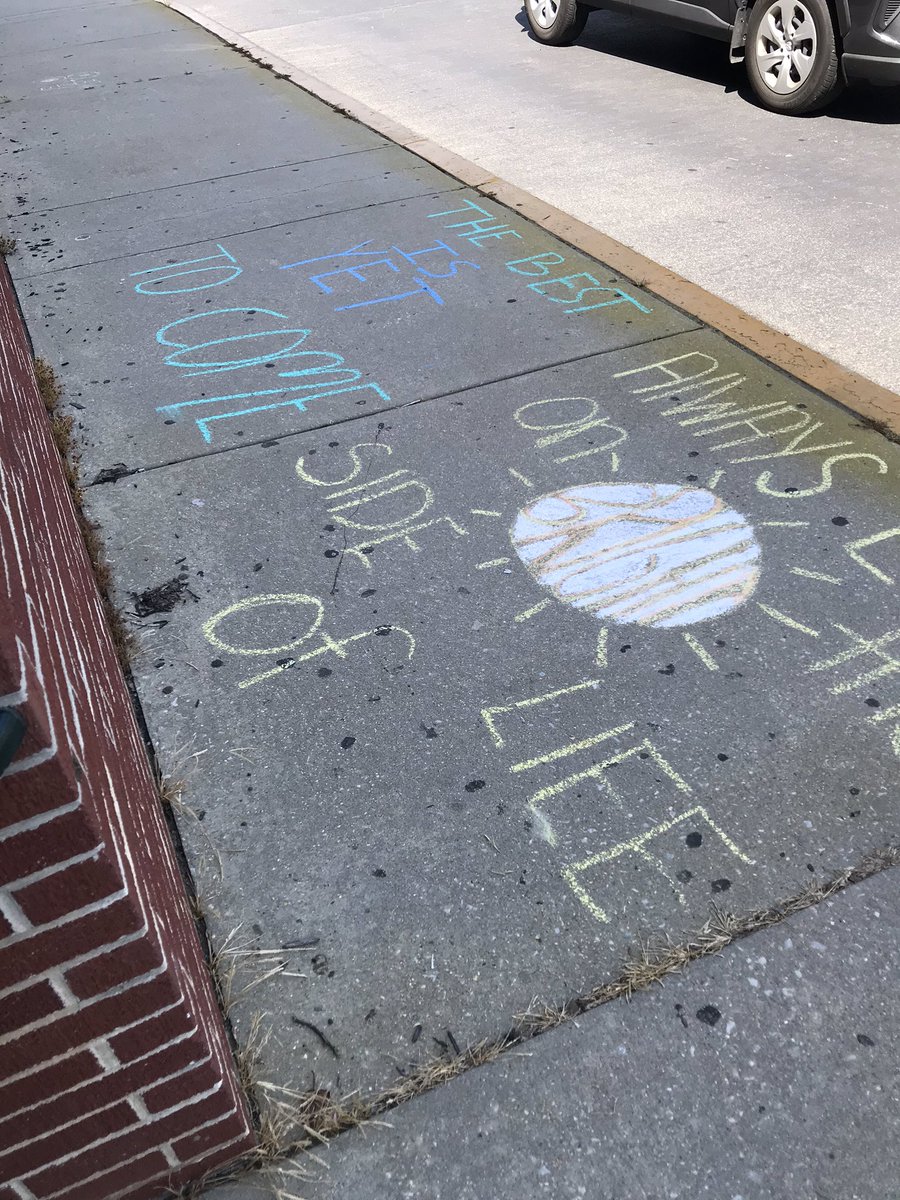 THE BEST
IS
YET
TO
COME
ALWAYS
on
SIDE
of
LIFE